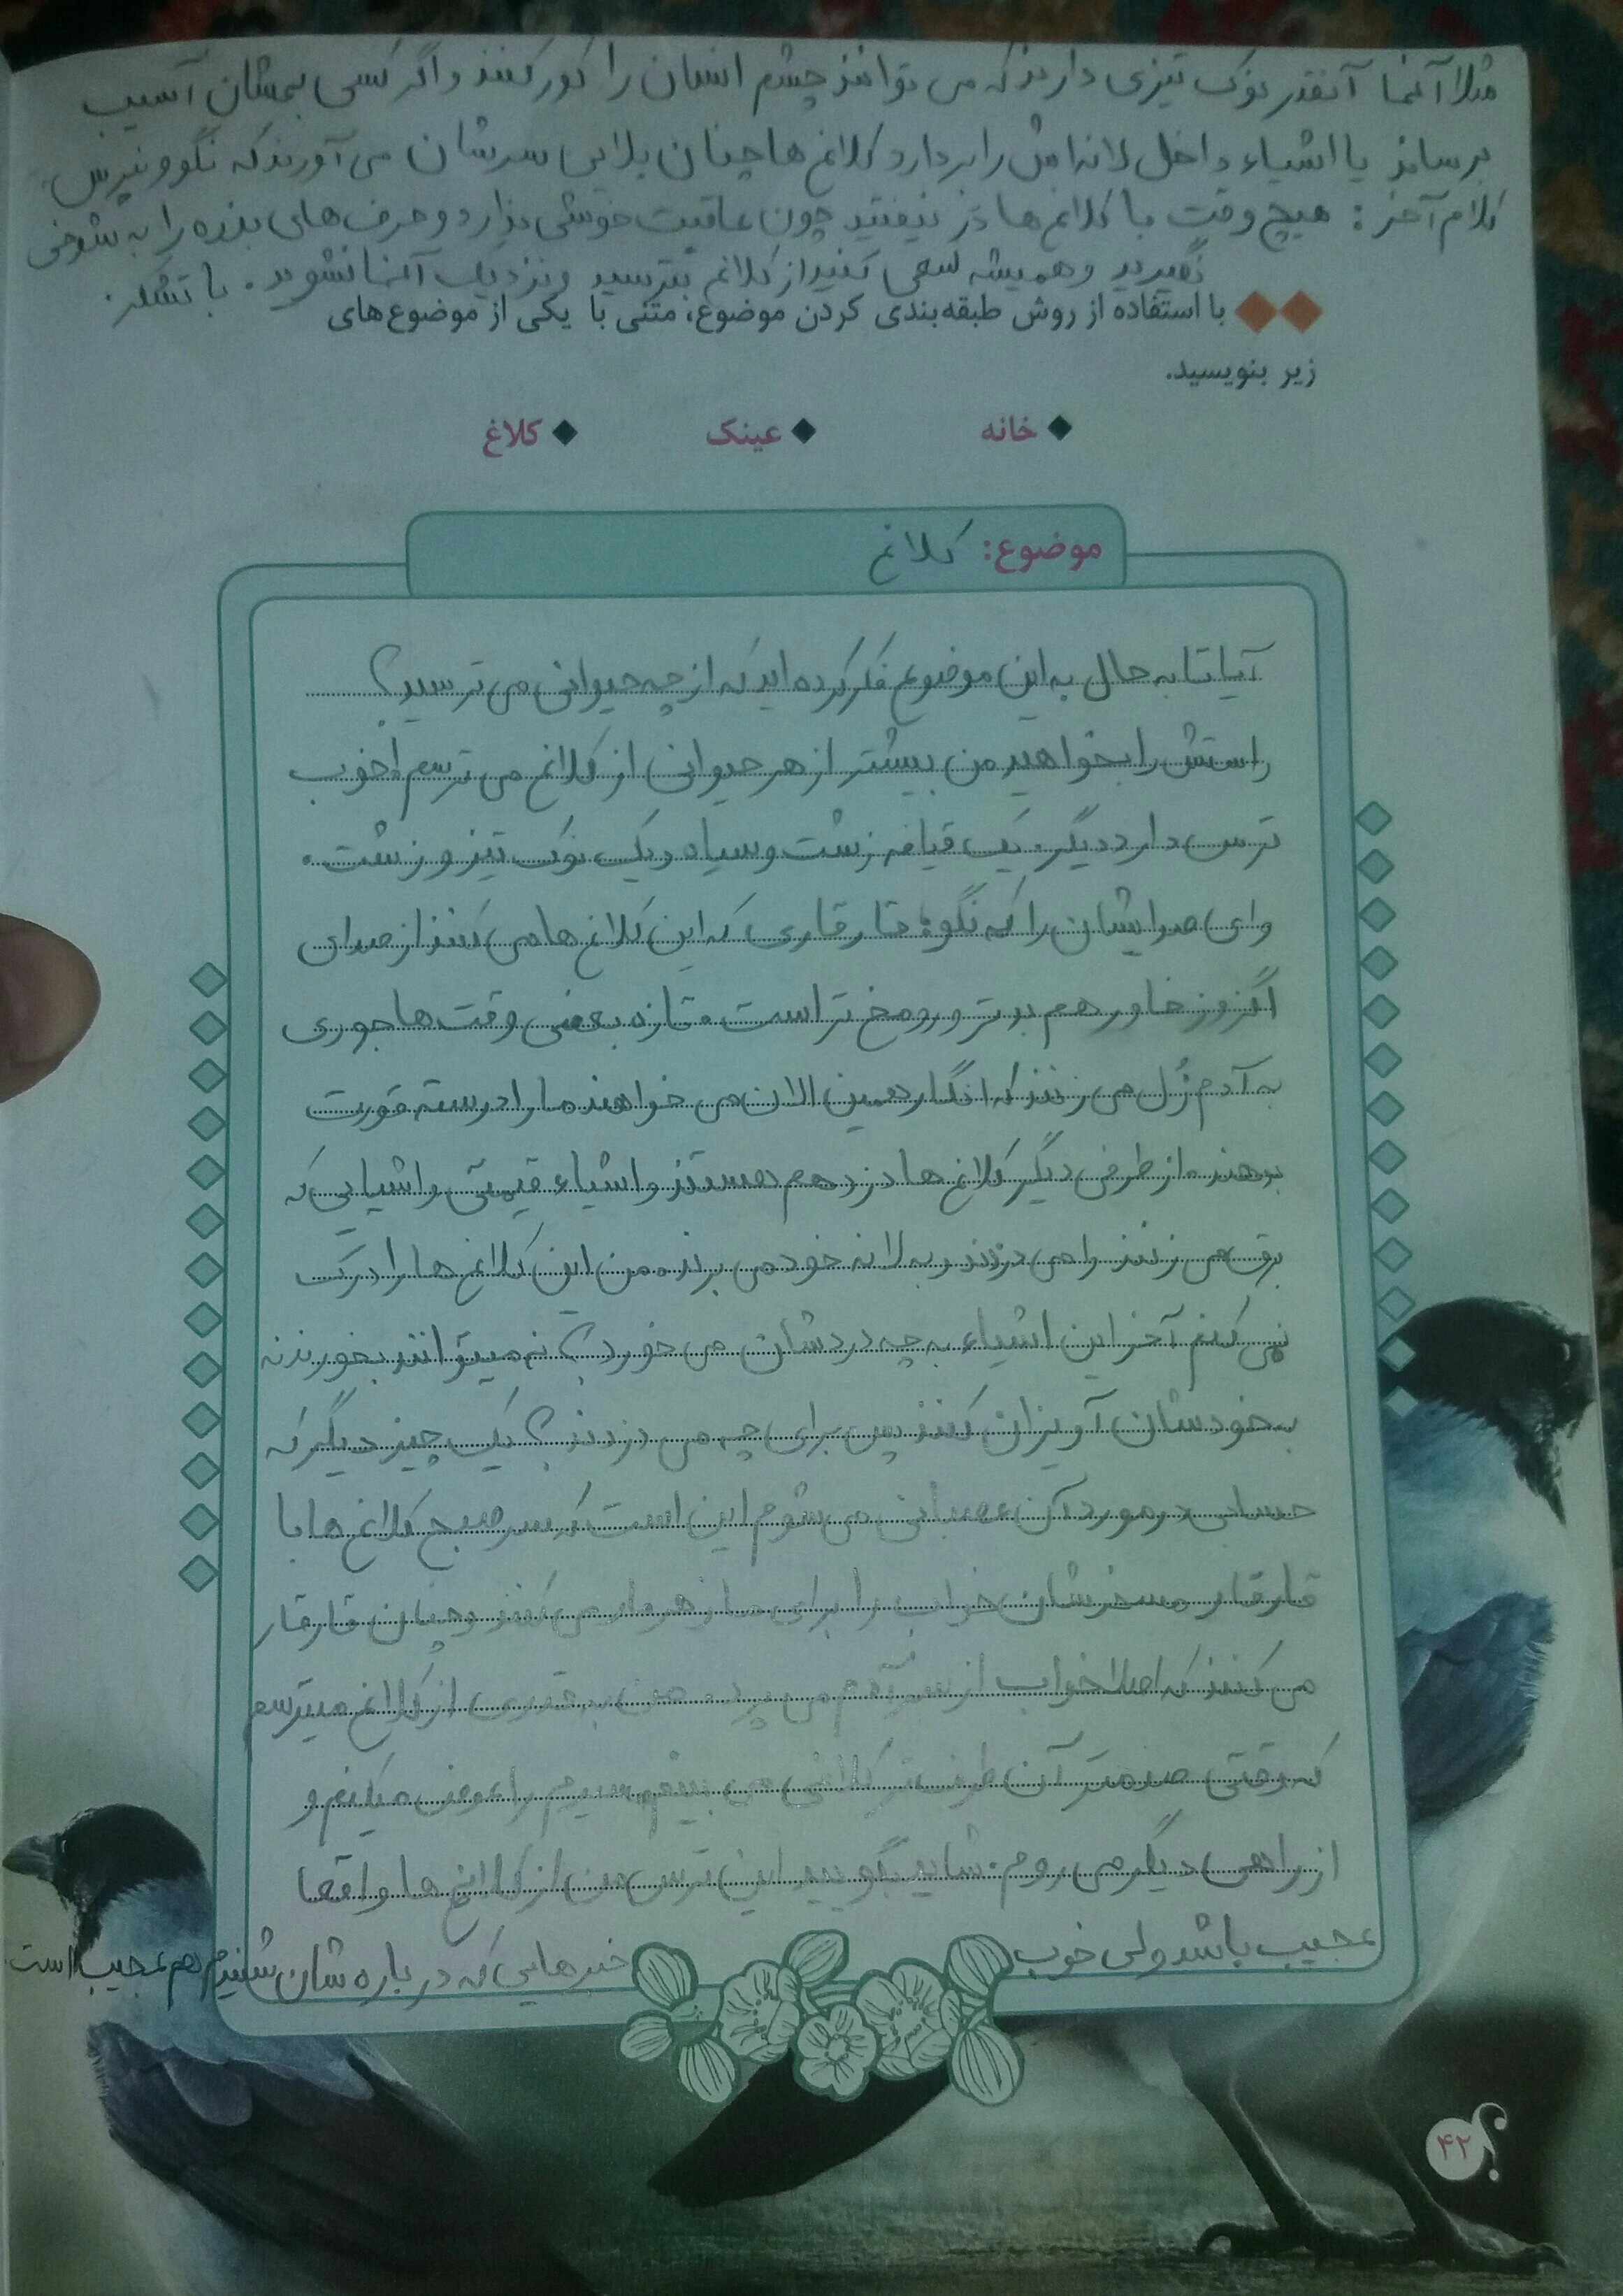 مثلا آنها آنقدر نوک تیزی دارند که می توانند چشم انسان را کور کنند و اگر کسی بهشان آسیب
برساند یا اشیاء داخل لانه اش را بردارد کلاغ ها چنان بلایی سرشان می آورند که نگو و نپرس
کلام آخر: هیچ وقت با کلاغ ها در نیفتید چون عاقبت خوشی ندارد و حرف های بنده را به شوخی
نگیرید و همیشه سعی کنید از کلاغ بترسید و نزدیک آنها نشوید. با تشکر.
با استفاده از روش طبقه‌بندی کردن موضوع، متنی با یکی از موضوع‌های
زیر بنویسید.
خانه عینک کلاغ
موضوع: کلاغ
آیا تا به حال به این موضوع فکر کرده اید که از چه حیوانی می ترسید؟
راستش را بخواهید من بیشتر از هر حیوانی از کلاغ می ترسم. خوب
ترس دارد دیگر. یک قیافه زشت و سیاه و یک نوک تیز و زشت.
وای صدایشان را که نگو؛ قار قاری که این کلاغ ها می کنند از صدای
اگزوز خاور هم بدتر و رومخ تر است. تازه بعضی وقت ها جوری
به آدم زُل می زنند که انگار همین الان می خواهند ما را درسته قورت
بدهند. از طرفی دیگر کلاغ ها دزد هم هستند و اشیاء قیمتی و اشیایی که
برق می زنند را می دزدند و به لانه خود می برند. من این کلاغ ها را درک
نمی کنم آخر این اشیاء به چه دردشان می خورد؟ نه میتوانند بخورند نه
به خودشان آویزان کنند پس برای چه می دزدند؟ یک چیز دیگر که
حسابی در مورد آن عصبانی می شوم این است که سر صبح کلاغ ها با
قارقار مسخرشان خواب را برای ما زهرمار می کنند و چنان قارقار
می کنند که اصلا خواب از سر آدم می پرد. من به قدری از کلاغ میترسم
که وقتی صد متر آن طرف تر کلاغی می بینم مسیرم را عوض میکنم و
از راهی دیگر می روم. شاید بگویید این ترس من از کلاغ ها واقعا
عجیب باشد ولی خوب خبرهایی که درباره شان شنیدم هم عجیب است
۴۲